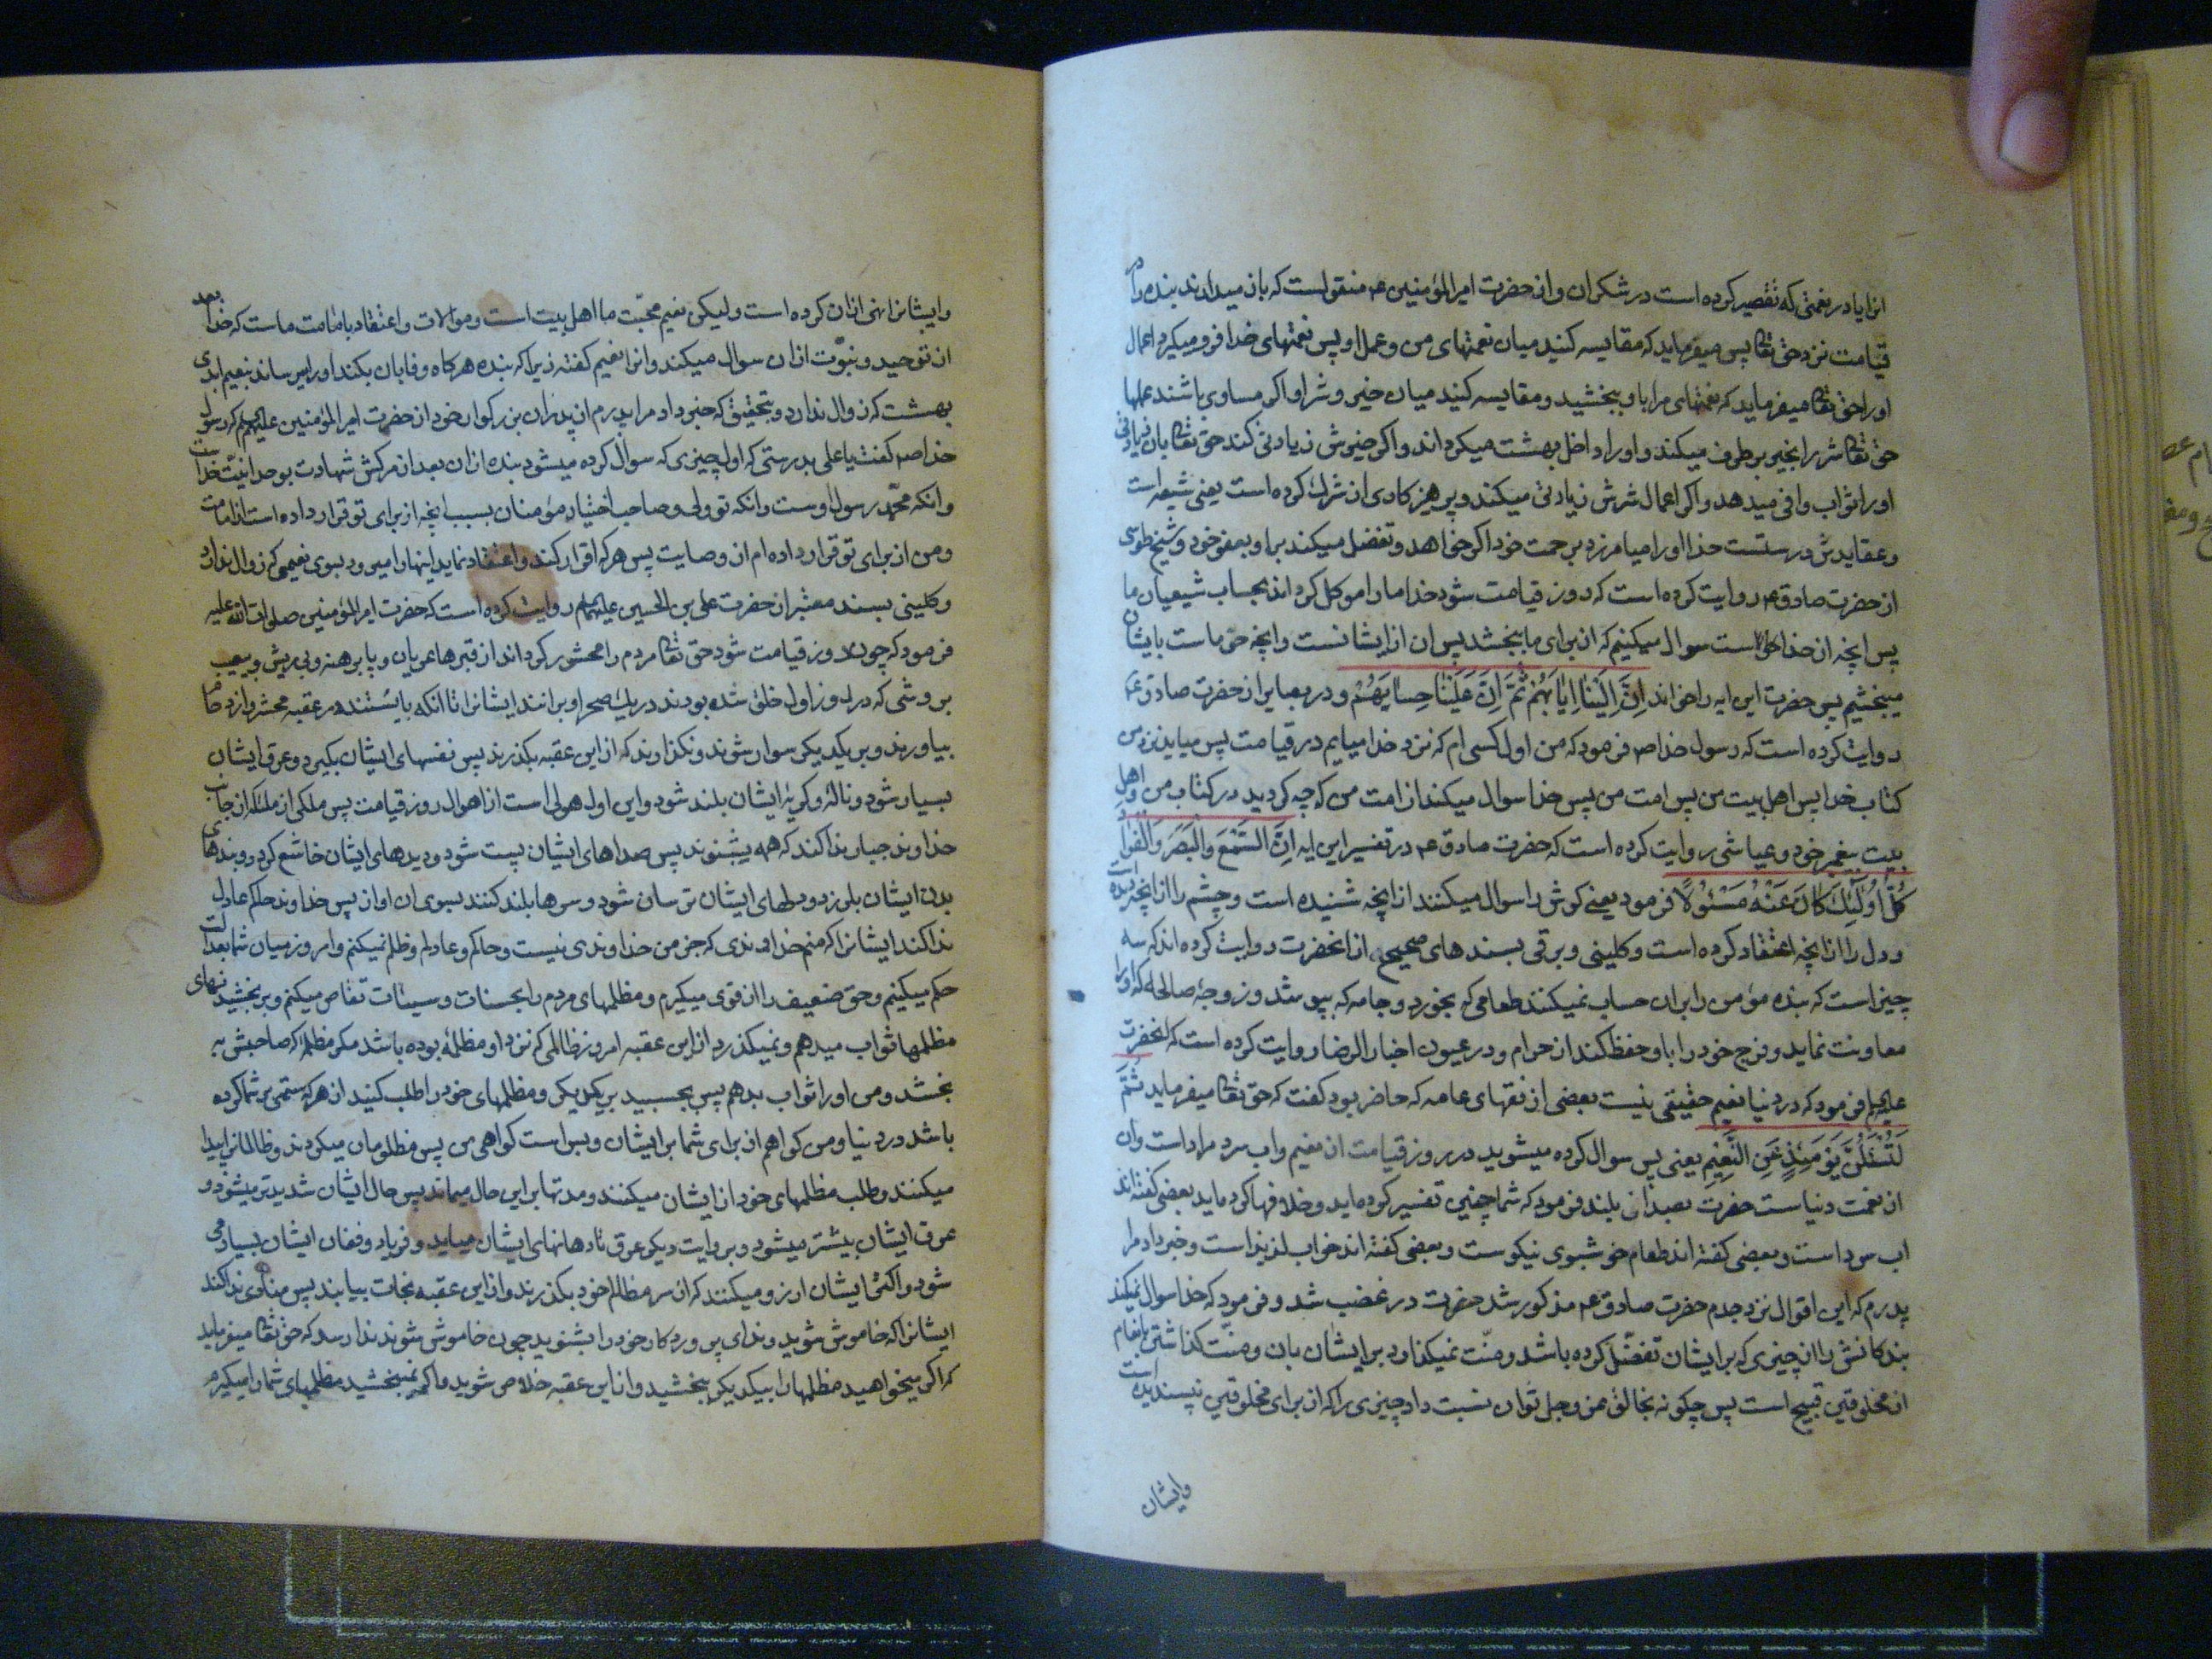 انرا یا در نعمتی که تقصیر کرده است در شکر ان و از حضرت امیر المؤمنین ع منقولست که باز میدارند بنده را در
قیامت نزد حق تعا پس میفرماید که مقایسه کنید میان نعمتهای من و عمل او پس نعمتهای خدا فرو میگیرد اعمال
او را حق تعا میفرماید که نعمتهای مرا باو ببخشید و مقایسه کنید میان خیر و شر او اگر مساوی باشند عملها
حق تعا شر را بخیر بر طرف میکند و او را داخل بهشت میگرداند و اگر خیرش زیادتی کند حق تعا بان زیادتی
او را ثواب وافی میدهد و اگر اعمال شرش زیادتی میکند و پرهیزکاری از شرك کرده است یعنی شیعه است
و عقایدش درستست خدا او را میامرزد برحمت خود اگر خواهد و تفضل میکند بر او بعفو خود و شیخ طوسی
از حضرت صادق ع روایت کرده است که روز قیامت شود خدا ما را موکل گرداند بحساب شیعیان ما
پس انچه از خداست سوال میکنیم که از برای ما ببخشد پس ان از ایشانست و انچه حق ماست بایشان
میبخشیم پس حضرت این ایه را خواند اِنَّ اِلَیْنا اِیابَهُمْ ثُمَّ اِنَّ عَلَیْنا حِسابَهُمْ و در بصایر از حضرت صادق ع
روایت کرده است که رسول خدا ص فرمود که من اول کسی ام که نزد خدا میایم در قیامت پس میاید نزد من
کتاب خدا پس اهل بیت من پس امت من پس خدا سوال میکند از امت من که چه کردید در کتاب من و اهل
بیت پیغمبر خود و عیاشی روایت کرده است که حضرت صادق ع در تفسیر این ایه اِنَّ السَّمْعَ وَالْبَصَرَ وَالْفُؤادَ
کُلُّ اُولٰئِكَ کانَ عَنْهُ مَسْئُولًا فرمود یعنی گوش را سوال میکنند از انچه شنیده است و چشم را از انچه دیده است
و دل را از انچه اعتقاد کرده است و کلینی و برقی بسندهای صحیح از انحضرت روایت کرده اند که سه
چیز است که بنده مؤمن را بران حساب نمیکنند طعامی که بخورد و جامه که بپوشد و زوجه صالحه که او را
معاونت نماید و فرج خود را باو حفظ کند از حرام و در عیون اخبار الرضا روایت کرده است که انحضرت
علیه السلام فرمود که در دنیا نعیم حقیقی نیست بعضی از فقهای عامه که حاضر بود گفت که حق تعا میفرماید ثُمَّ
لَتُسْئَلُنَّ یَوْمَئِذٍ عَنِ النَّعِیْمِ یعنی پس سوال کرده میشوید در روز قیامت از نعیم و اب سرد مراد است و ان
از نعمت دنیاست حضرت بصدای بلند فرمود که شما چنین تفسیر کرده اید و خلافها کرده اید بعضی گفته اند
اب سرد است و بعضی گفته اند طعام خوشبوی نیکوست و بعضی گفته اند خواب لذیذ است و خبر داد مرا
پدرم که این اقوال نزد جدم حضرت صادق ع مذکور شد حضرت در غضب شد و فرمود که خدا سوال نمیکند
بندگانش را از چیزی که بر ایشان تفضّل کرده باشد و منّت نمیگذارد بر ایشان بان و منّت گذاشتن بانعام
از مخلوقین قبیح است پس چگونه بخالق عز و جل توان نسبت داد چیزی را که از برای مخلوقین نپسندیده است
وایشان
و ایشانرا نهی ازان کرده است و لیکن نعیم محبّت ما اهل بیت است و موالات و اعتقاد بامامت ماست که خدا بعد
از توحید و نبوّت ازان سوال میکند و انرا نعیم گفته زیرا که بنده هرگاه وفا بان بکند او را میرساند بنعیم ابدی
بهشت که زوال ندارد و بتحقیق که خبر داد مرا پدرم از پدران بزرگوار خود از حضرت امیر المؤمنین علیهم السلام که رسول
خدا ص گفت یا علی بدرستی که اول چیزی که سوال کرده میشود بنده ازان بعد از مرگش شهادت بوحدانیّت خداست
و انکه محمّد رسول اوست و انکه تو ولی و صاحب اختیار مؤمنان بسبب انچه از برای تو قرار داده است از امامت
و من از برای تو قرار داده ام از وصایت پس هرکه اقرار کند و اعتقاد نماید اینها را میرود بسوی نعیمی که زوال ندارد
و کلینی بسند معتبر از حضرت علی بن الحسین علیهما السلام روایت کرده است که حضرت امیر المؤمنین صلوات الله علیه
فرمود که چون روز قیامت شود حق تعا مردم را محشور گرداند از قبرها عریان و پا برهنه و بی ریش و بیعیب
بروشی که در روز اول خلق شده بودند در یك صحرا و برانند ایشانرا تا انکه بایستند در عقبه محشر و ازدحام
بیاورند و بر یکدیگر سوار شوند و نگذارند که از این عقبه بگذرند پس نفسهای ایشان بگیرد و عرق ایشان
بسیار شود و ناله و گریه ایشان بلند شود و این اول هولی است از اهوال روز قیامت پس ملکی از ملئکه از جانب
خداوند جبار ندا کند که همه بشنوند پس صداهای ایشان پست شود و دیدهای ایشان خاشع گردد و بندهای
بدن ایشان بلرزد و دلهای ایشان ترسان شود و سرها بلند کنند بسوی ان اواز پس خداوند حکم عادل
ندا کند ایشانرا که منم خداوندی که جز من خداوندی نیست و حاکم و عادلم و ظلم نمیکنم و امروز میان شما بعدالت
حکم میکنم و حق ضعیف را از قوی میگیرم و مظلمهای مردم را بحسنات و سیئات تقاص میکنم و بر بخشیدنهای
مظلمها ثواب میدهم و نمیگذرد از این عقبه امروز ظالمی که نزد او مظلمه بوده باشد مگر مظلمه که صاحبش به
بخشد و من او را ثواب بدهم پس بچسبید بر یکدیگر و مظلمهای خود را طلب کنید از هرکه ستمی بر شما کرده
باشد در دنیا و من گواهم از برای شما بر ایشان و بس است گواهی من پس مظلومان میگردند و ظالمانرا پیدا
میکنند و طلب مظلمهای خود از ایشان میکنند و مدتها بر این حال میمانند پس حال ایشان شدیدتر میشود و
عرق ایشان بیشتر میشود و بروایت دیگر عرق تا دهانهای ایشان میاید و فریاد و فغان ایشان بسیار می
شود و اکثر ایشان ارزو میکنند که از سر مظالم خود بگذرند و از این عقبه نجات بیابند پس منادی ندا کند
ایشانرا که خاموش شوید و ندای پروردگار خود را بشنوید چون خاموش شوند ندا رسد که حق تعا میفرماید
که اگر میخواهید مظلمها را بیکدیگر ببخشید و از این عقبه خلاص شوید و اگر نمیبخشید مظلمهای شما را میگیرم